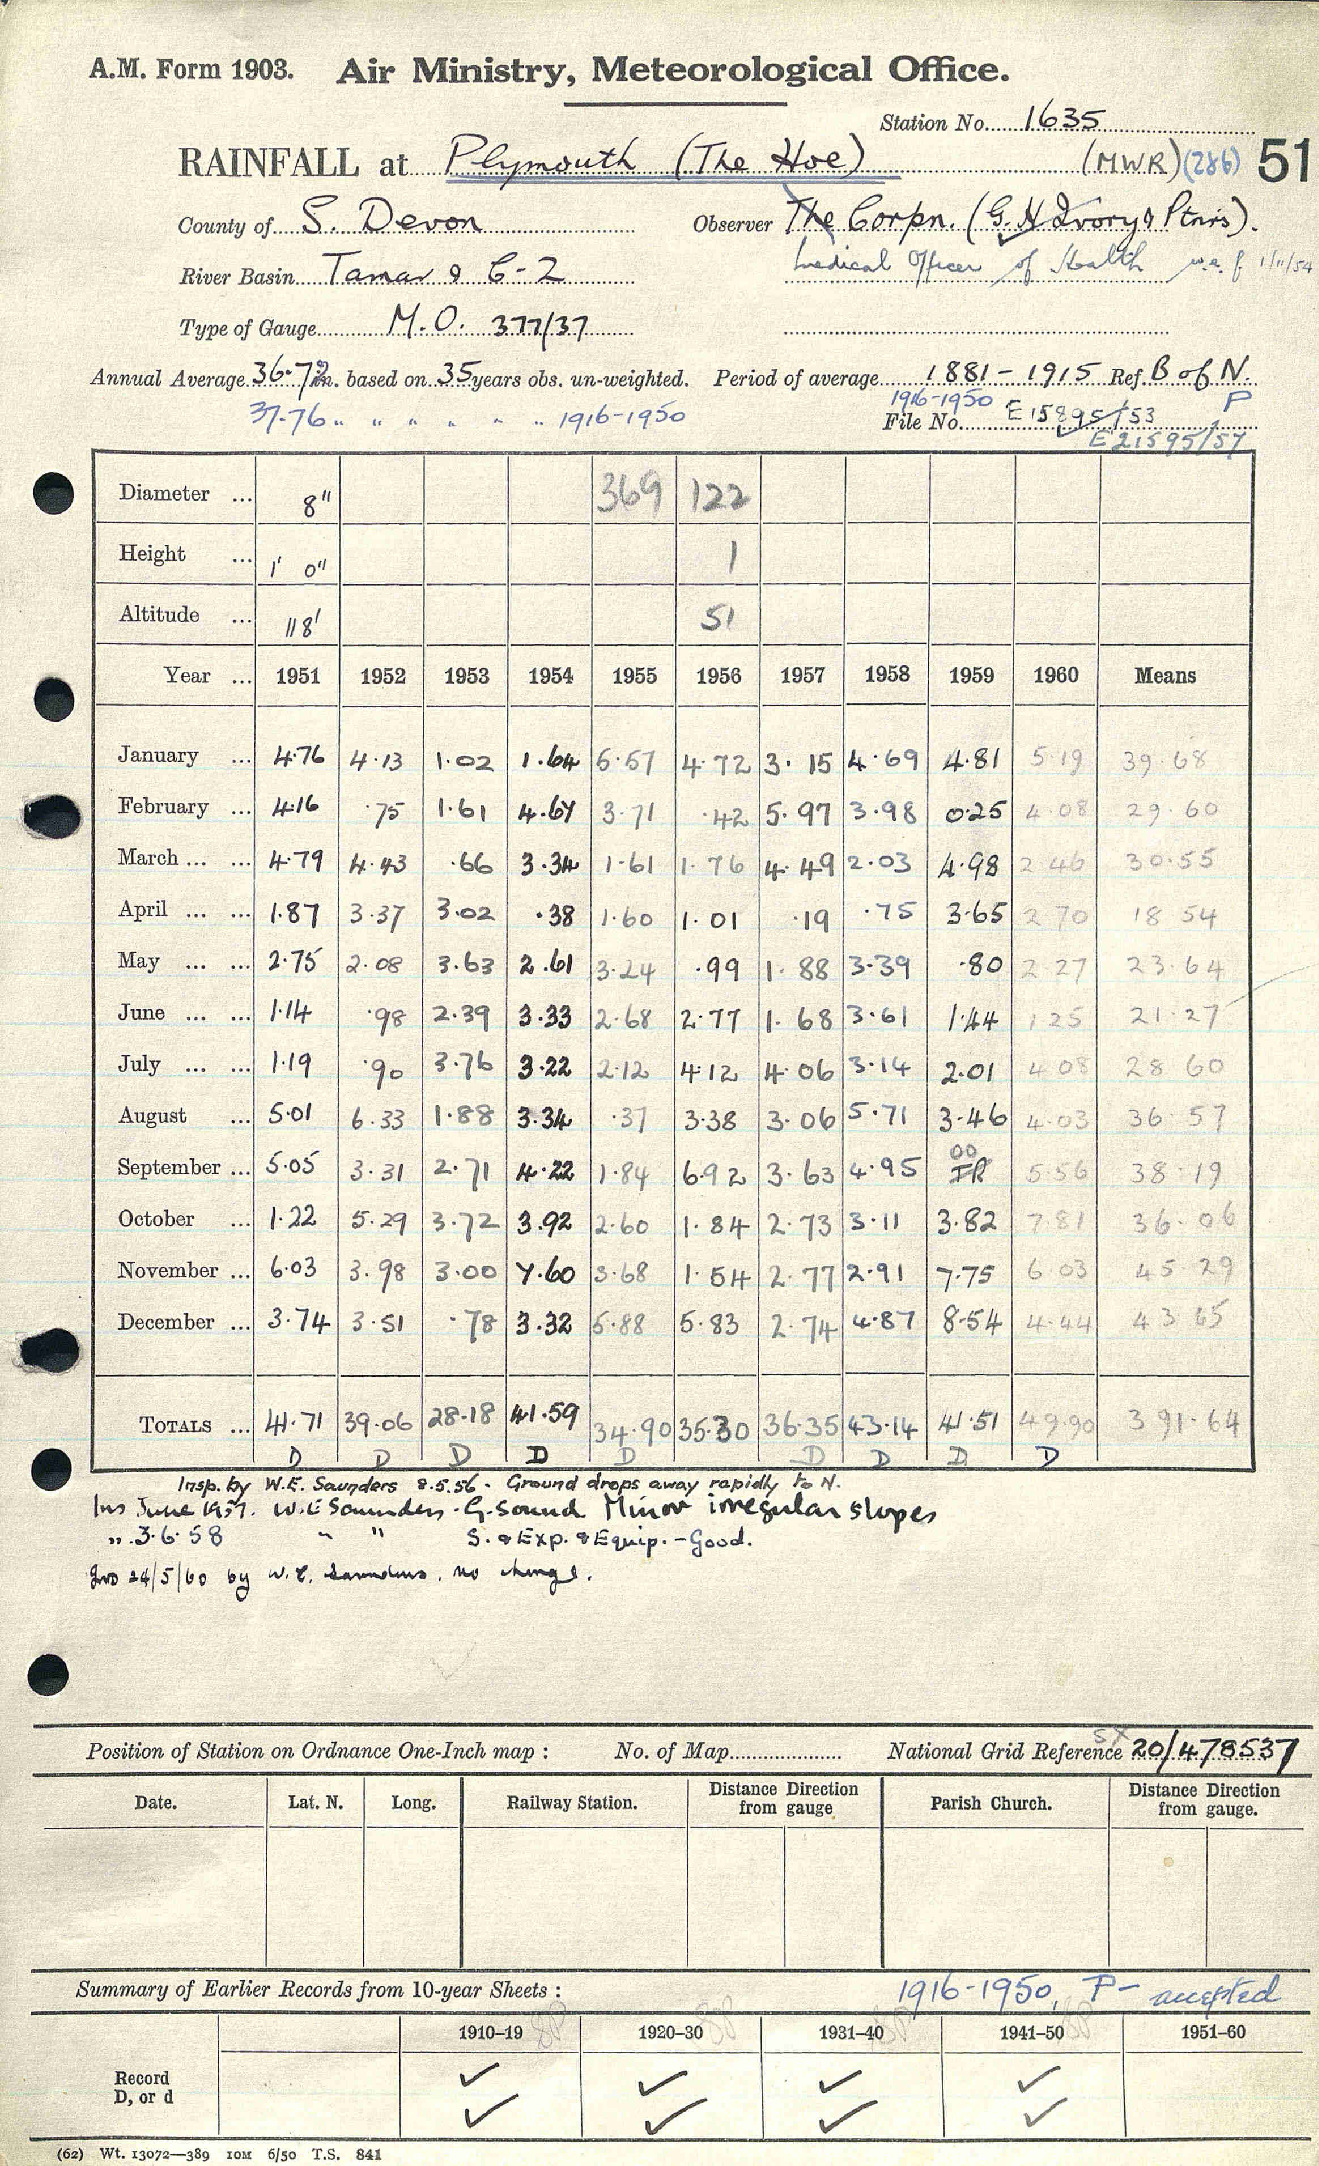 A.M. Form 1903. Air Ministry, Meteorological Office.
Station No. 1635
RAINFALL at Plymouth (The Hoe) (MWR) (286) 51
County of S. Devon Observer The Corpn. (G. H Ivory & Ptnrs).
Medical Officer of Health w.e.f. 1/11/54
River Basin Tamar & C-2
Type of Gauge M.O. 377/37
Annual Average 36.72 in. based on 35 years obs. un-weighted. Period of average 1881-1915 Ref. B of N.
37.76 " " " " " " 1916-1950 1916-1950 P
File No. E15895/53
E21595/57
Diameter ... 8" 369 122
Height ... 1' 0" 1
Altitude ... 118' 51
Year ... 1951 1952 1953 1954 1955 1956 1957 1958 1959 1960 Means
January ... 4.76 4.13 1.02 1.64 5.57 4.72 3.15 4.69 4.81 5.19 39.68
February ... 4.16 .75 1.61 4.67 3.71 .42 5.97 3.98 0.25 4.08 29 60
March ... ... 4.79 4.43 .66 3.34 1.61 1.76 4.49 2.03 4.98 2 46 30.55
April ... ... 1.87 3.37 3.02 .38 1.60 1.01 .19 .75 3.65 2 70 18 54
May ... ... 2.75 2.08 3.63 2.61 3.24 .99 1.88 3.39 .80 2 27 23.64
June ... ... 1.14 .98 2.39 3.33 2.68 2.77 1.68 3.61 1.44 1 25 21.27
July ... ... 1.19 .90 3.76 3.22 2.12 4.12 4.06 3.14 2.01 4 08 28 60
August ... 5.01 6.33 1.88 3.34 .37 3.38 3.06 5.71 3.46 4.03 36 57
September ... 5.05 3.31 2.71 4.22 1.84 6.92 3.63 4.95 00 IR 5.56 38.19
October ... 1.22 5.29 3.72 3.92 2.60 1.84 2.73 3.11 3.82 7.81 36.06
November ... 6.03 3.98 3.00 7.60 3.68 1.54 2.77 2.91 7.75 6 03 45 29
December ... 3.74 3.51 .78 3.32 5.88 5.83 2.74 4.87 8.54 4.44 43 65
TOTALS ... 41.71 39.06 28.18 41.59 34.90 35.30 36.35 43.14 41.51 49.90 391.64
D D D D D D D D D
Insp. by W.E. Saunders 8.5.56. Ground drops away rapidly to N.
Ins June 1957. W.E Saunders. G. Sound Minor irregular slopes
" 3.6.58 " " S. & Exp. & Equip. - Good.
24/5/60 by W.E. Saunders. no change.
Position of Station on Ordnance One-Inch map : No. of Map National Grid Reference SX 20/478537
Date. Lat. N. Long. Railway Station. Distance Direction from gauge Parish Church. Distance Direction from gauge.
Summary of Earlier Records from 10-year Sheets : 1916-1950, P- accepted
1910–19 1920–30 1931–40 1941–50 1951–60
Record ✓ ✓ ✓ ✓
D, or d ✓ ✓ ✓ ✓
(62) Wt. 13072—389 10M 6/50 T.S. 841